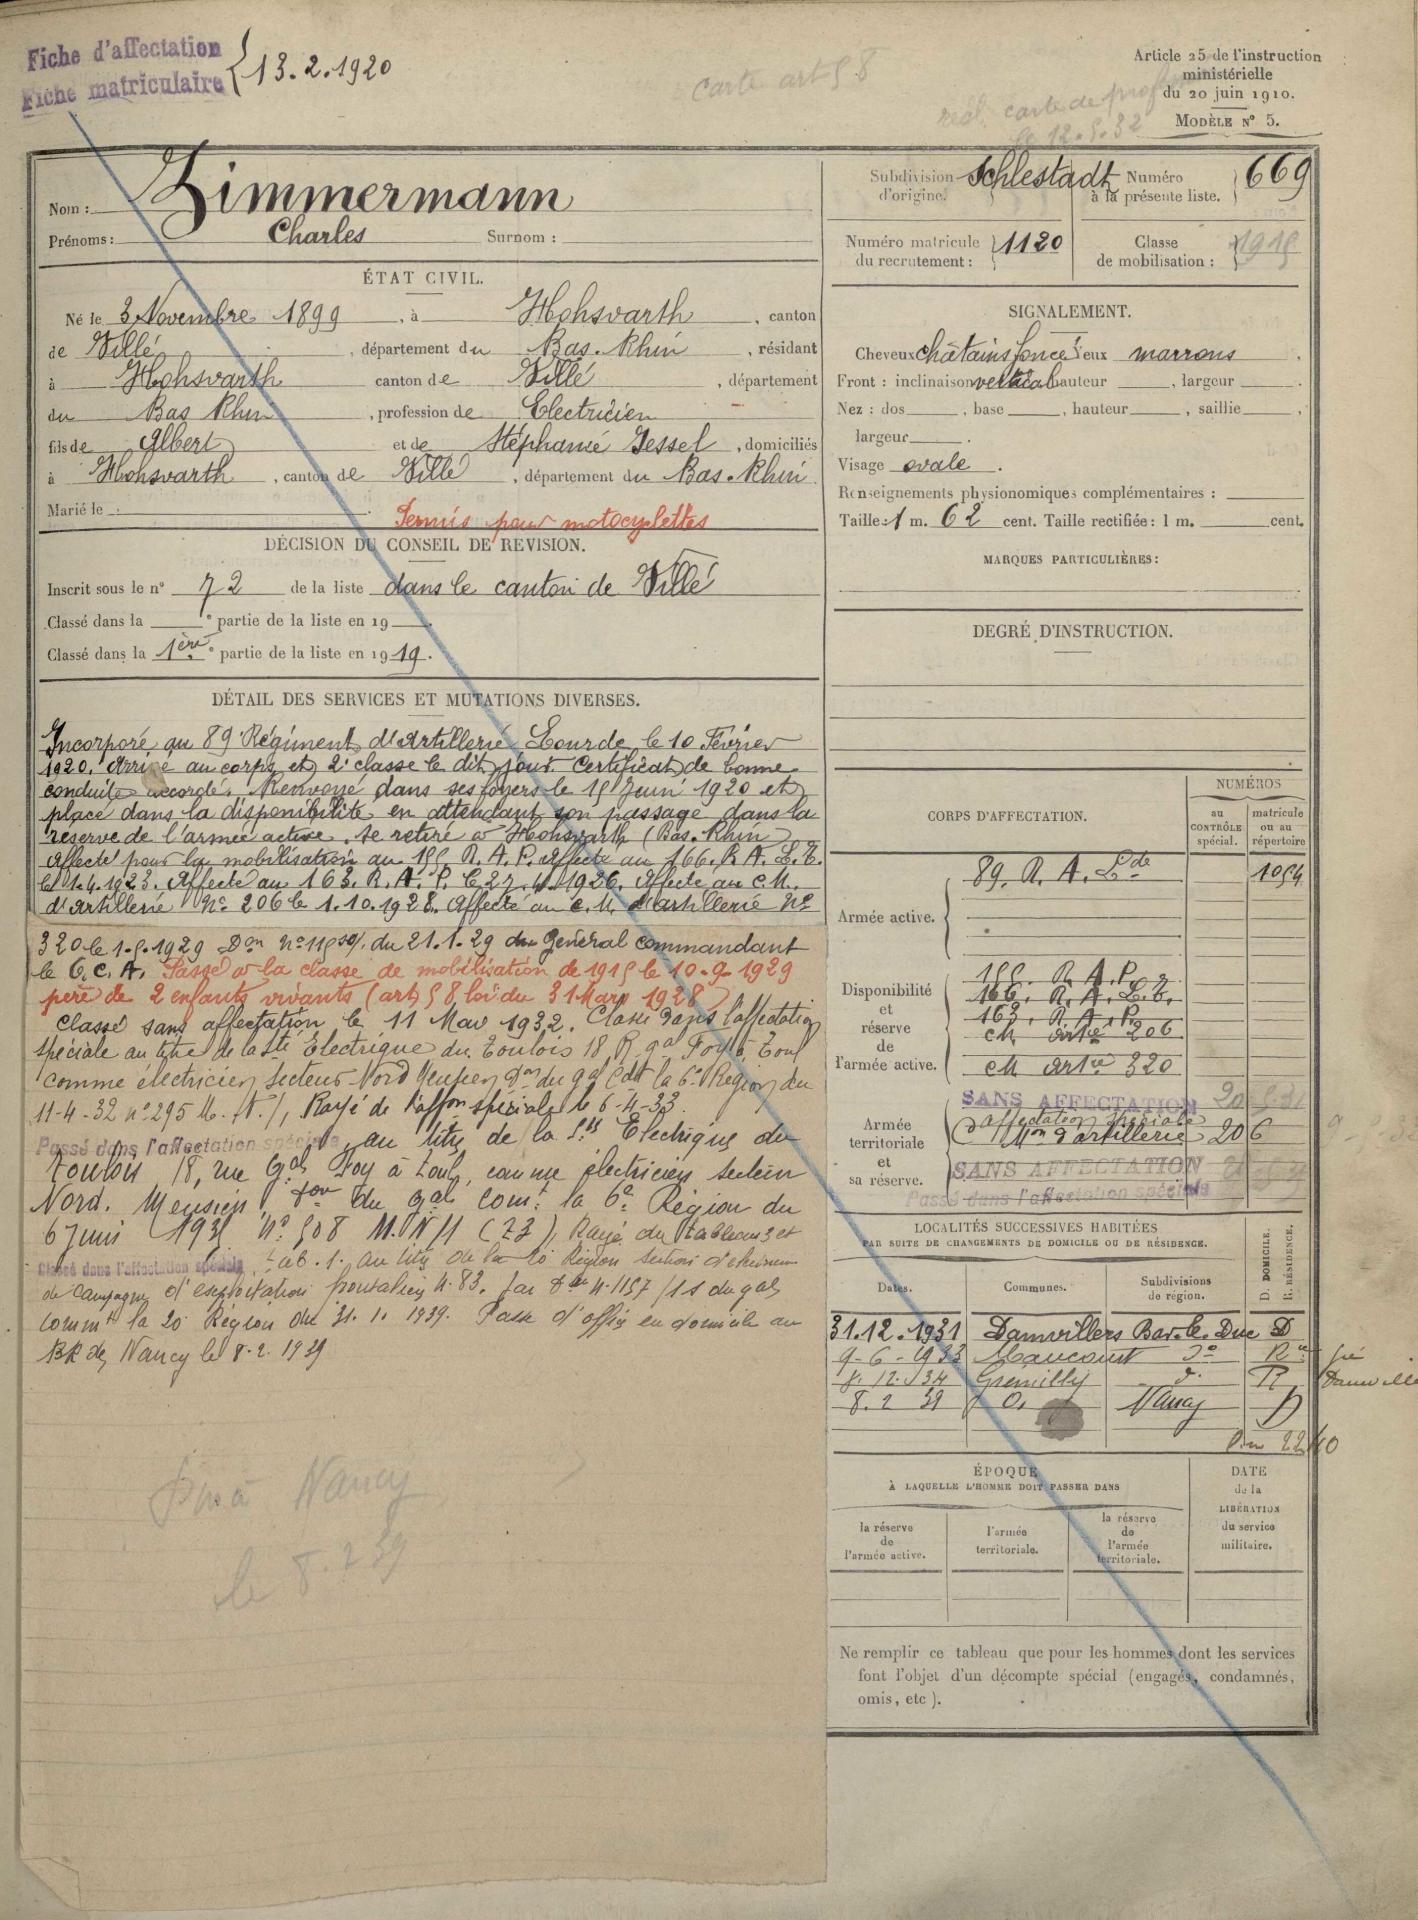 Fiche d'affectation
Fiche matriculaire } 13.2.1920
carte art 58
carte de
le 12.5.32
Article 25 de l'instruction
ministérielle
du 20 juin 1910.
MODÈLE N° 5.
Nom : Zimmermann
Prénoms : Charles Surnom :
Subdivision d'origine. Schlestadt
Numéro à la présente liste. 669
Numéro matricule du recrutement : 1120
Classe de mobilisation : 1915
ÉTAT CIVIL.
Né le 3 Novembre 1899, à Hohswarth, canton
de Villé, département du Bas-Rhin, résidant
à Hohswarth canton de Villé, département
du Bas Rhin, profession de Electricien
fils de Albert et de Stéphanie Jessel, domiciliés
à Hohswarth, canton de Villé, département du Bas-Rhin.
Marié le :
Permis pour motocyclettes
DÉCISION DU CONSEIL DE REVISION.
Inscrit sous le n° 72 de la liste dans le canton de Villé
Classé dans la ° partie de la liste en 19 .
Classé dans la 1ère ° partie de la liste en 1919.
DÉTAIL DES SERVICES ET MUTATIONS DIVERSES.
Incorporé au 89 Régiment d'Artillerie Lourde le 10 Février
1920. Arrivé au corps et 2e classe le dit jour. Certificat de bonne
conduite accordé. Renvoyé dans ses foyers le 15 Juin 1920 et
placé dans la disponibilité en attendant son passage dans la
réserve de l'armée active. Se retire à Hohswarth (Bas. Rhin)
Affecté pour la mobilisation au 155 R. A. P. Affecté au 166. R. A. L. T.
le 1.4.1923. Affecté au 163. R. A. P. le 27.4.1926. Affecté au C.M.
d'Artillerie N° 206 le 1.10.1928. Affecté au C.M. d'artillerie N°
320 le 1-5-1929 Don n° 115 du 21.1.29 du Général commandant
le 6. C. A. Passé à la classe de mobilisation de 1915 le 10-9-1929
père de 2 enfants vivants (art 58 loi du 31 Mars 1928)
Classé sans affectation le 11 Mai 1932. Classé dans l'affectation
spéciale au titre de la Sté Electrique du Toulois 18 R. gal Foy à Toul
comme électricien secteur Nord Meusien Don du gal Cdt la 6e Région du
11-4-32 n° 295 M. N./, Rayé de l'affon spéciale le 6-4-33.
Passé dans l'affectation spéciale au titre de la Sté Electrique du
Toulois 18, rue Gal Foy à Toul, comme électricien secteur
Nord. Meusien don du gal comt la 6e Région du
6 Juin 193 n° 508 M.N/1 (73), Rayé du tableau 3 et
Classé dans l'affectation spéciale tab. 1. au titre de la 20 Région section de chemin
de Campagne d'exploitation n. 83. par Don n. 1157/1S du gal
commt la 20 Région du 31. 1. 1939. Passé d'office en domicile au
BR de Nancy le 8.2.1939
à Nancy
le 8.2 39
SIGNALEMENT.
Cheveux châtains foncé Yeux marrons .
Front : inclinaison vertical hauteur , largeur .
Nez : dos , base , hauteur , saillie ,
largeur .
Visage ovale .
Renseignements physionomiques complémentaires :
Taille : 1 m. 62 cent. Taille rectifiée : 1 m. cent.
MARQUES PARTICULIÈRES :
DEGRÉ D'INSTRUCTION.
CORPS D'AFFECTATION.
NUMÉROS
au CONTRÔLE spécial.
matricule ou au répertoire
Armée active.
89. R. A. Lde 1054
Disponibilité et réserve de l'armée active.
155. R. A. P.
166. R. A. L. T.
163. R. A. P.
CM artie 206
CM artie 320
Armée territoriale et sa réserve.
SANS AFFECTATION
affectation spéciale
d'artillerie 206
SANS AFFECTATION
Passé dans l'affectation spéciale
LOCALITÉS SUCCESSIVES HABITÉES
PAR SUITE DE CHANGEMENTS DE DOMICILE OU DE RÉSIDENCE.
Dates. Communes. Subdivisions de région. D. DOMICILE. R. RÉSIDENCE.
31.12.1931 Damvillers Bar-le-Duc D
9-6-1933 Maucourt do R
8.12.34 Gremilly d° R
8.2 39 Nancy D
ÉPOQUE
À LAQUELLE L'HOMME DOIT PASSER DANS
DATE
de la
LIBÉRATION
du service
militaire.
la réserve de l'armée active.
l'armée territoriale.
la réserve de l'armée territoriale.
Ne remplir ce tableau que pour les hommes dont les services
font l'objet d'un décompte spécial (engagés, condamnés,
omis, etc ).